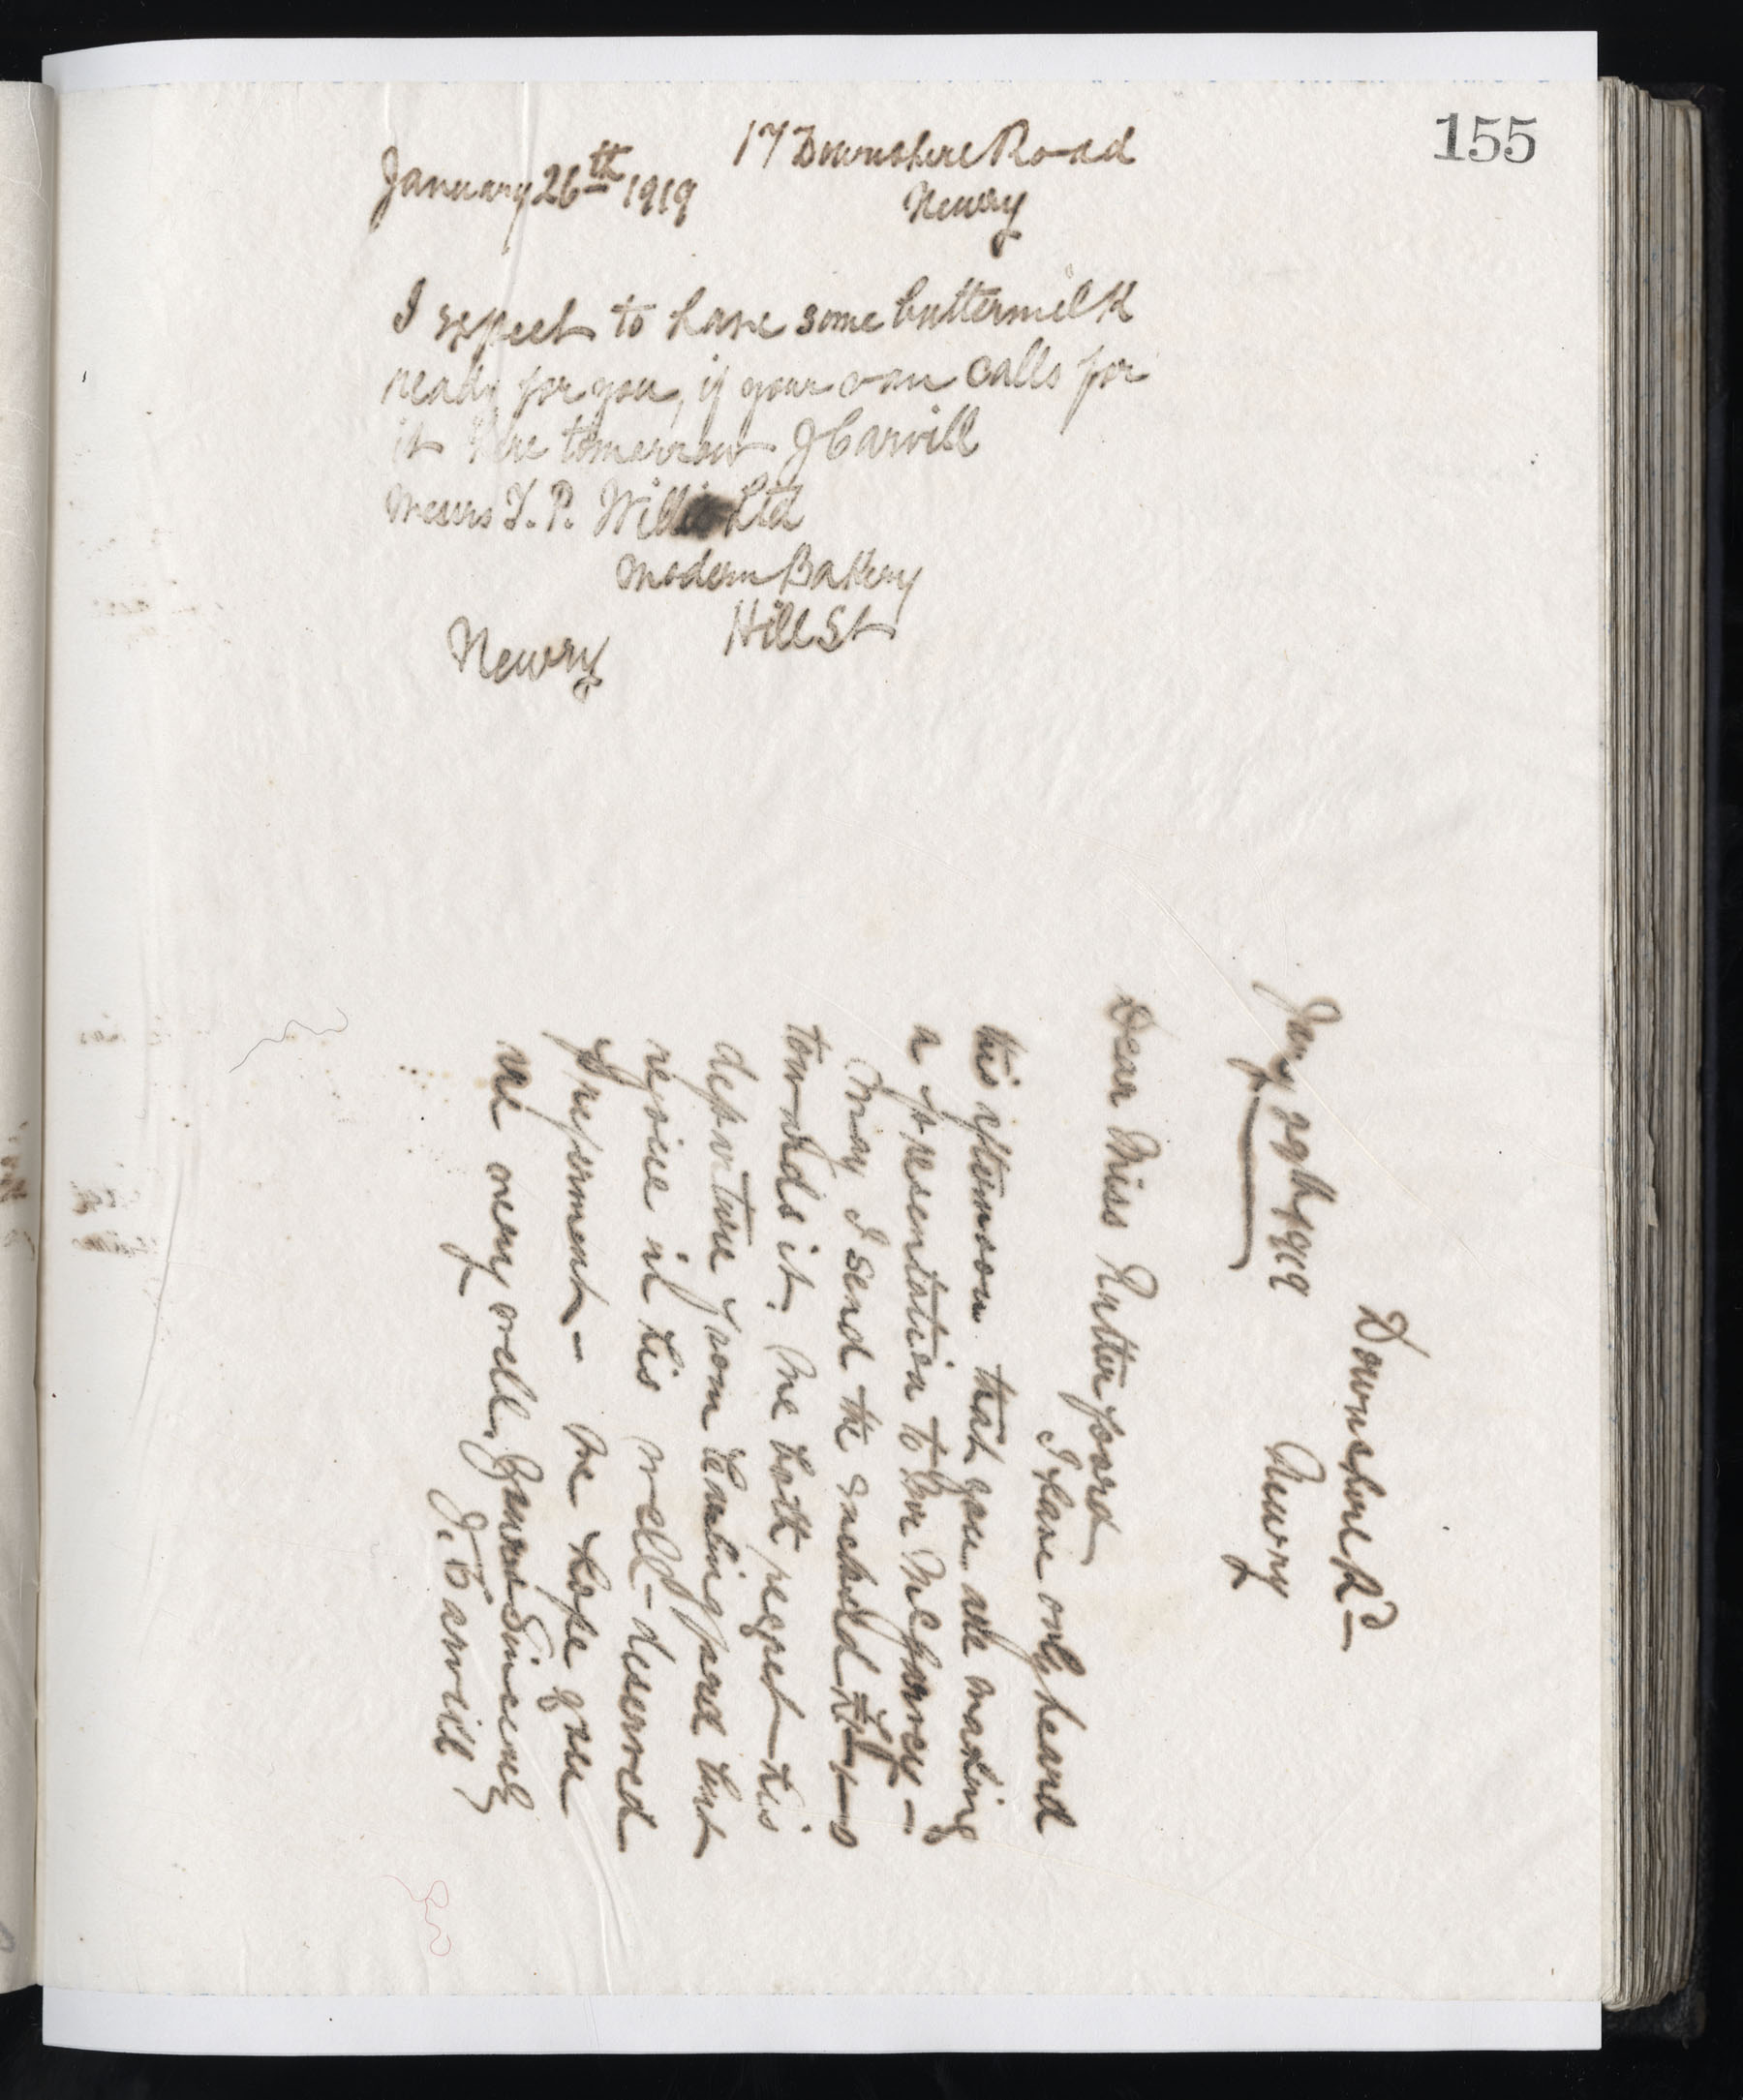 155
17 Downshire Road
January 26th 1919
Newry
I expect to have some buttermilk
ready for you, if your van calls for
it here tomorrow J Carvill
Messrs T. P. Willis Ltd
Modern Bakery
Hill St
Newry
Downshire Rd
Jany 29th 1919
Newry
Dear Miss Rutherfoord
I have only heard
this afternoon that you are making
a presentation to Mr McGarvey –
May I send the enclosed
towards it. We both regret his
departure from among you but
rejoice in his well-deserved
preferment – We hope you
are very well. Yours Sincerely
J. Carvill